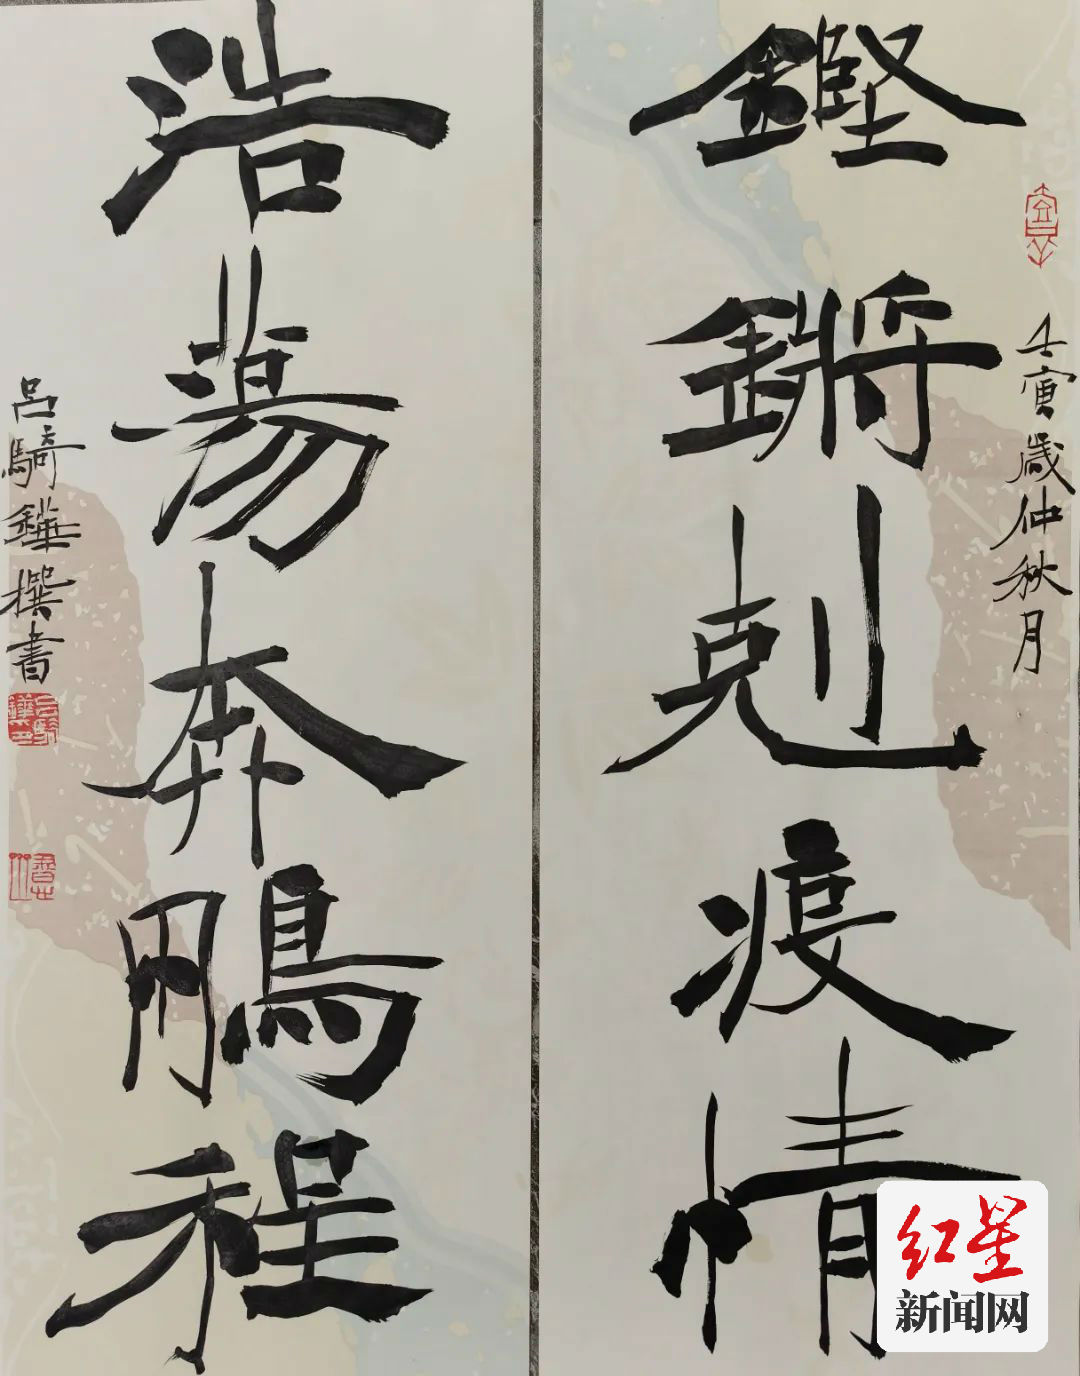 壬寅歲仲秋月
鏗鏘剋疫情
浩蕩奔鵬程
呂騎鏵撰書
红星
新闻网